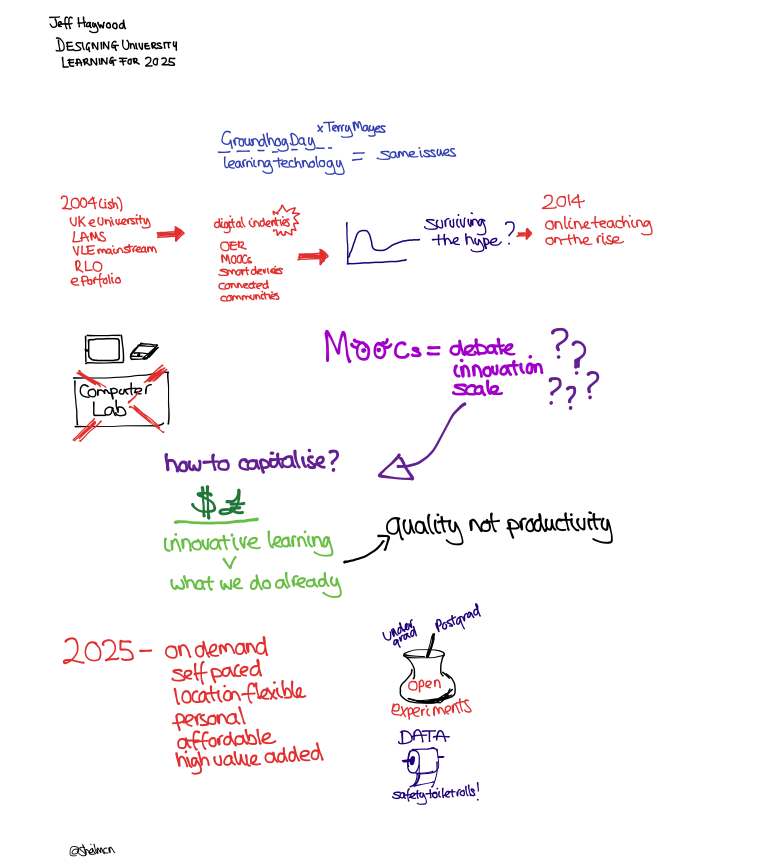 Jeff Haywood
DESIGNING UNIVERSITY
LEARNING FOR 2025
Groundhog Day x Terry Mayes
learning technology = same issues
2004(ish)
UK e University
LAMS
VLE mainstream
RLO
e Porfolio
digital indenties
OER
MOOCs
smart devices
connected
communities
surviving
the hype?
2014
online teaching
on the rise
Computer
Lab
MOOCs = debate
innovation
scale
?? ???
how to capitalise?
$£
innovative learning
v
what we do already
quality not productivity
2025 - on demand
self paced
location-flexible
personal
affordable
high value added
Under
grad
Postgrad
open
experiments
DATA
safety toilet rolls!